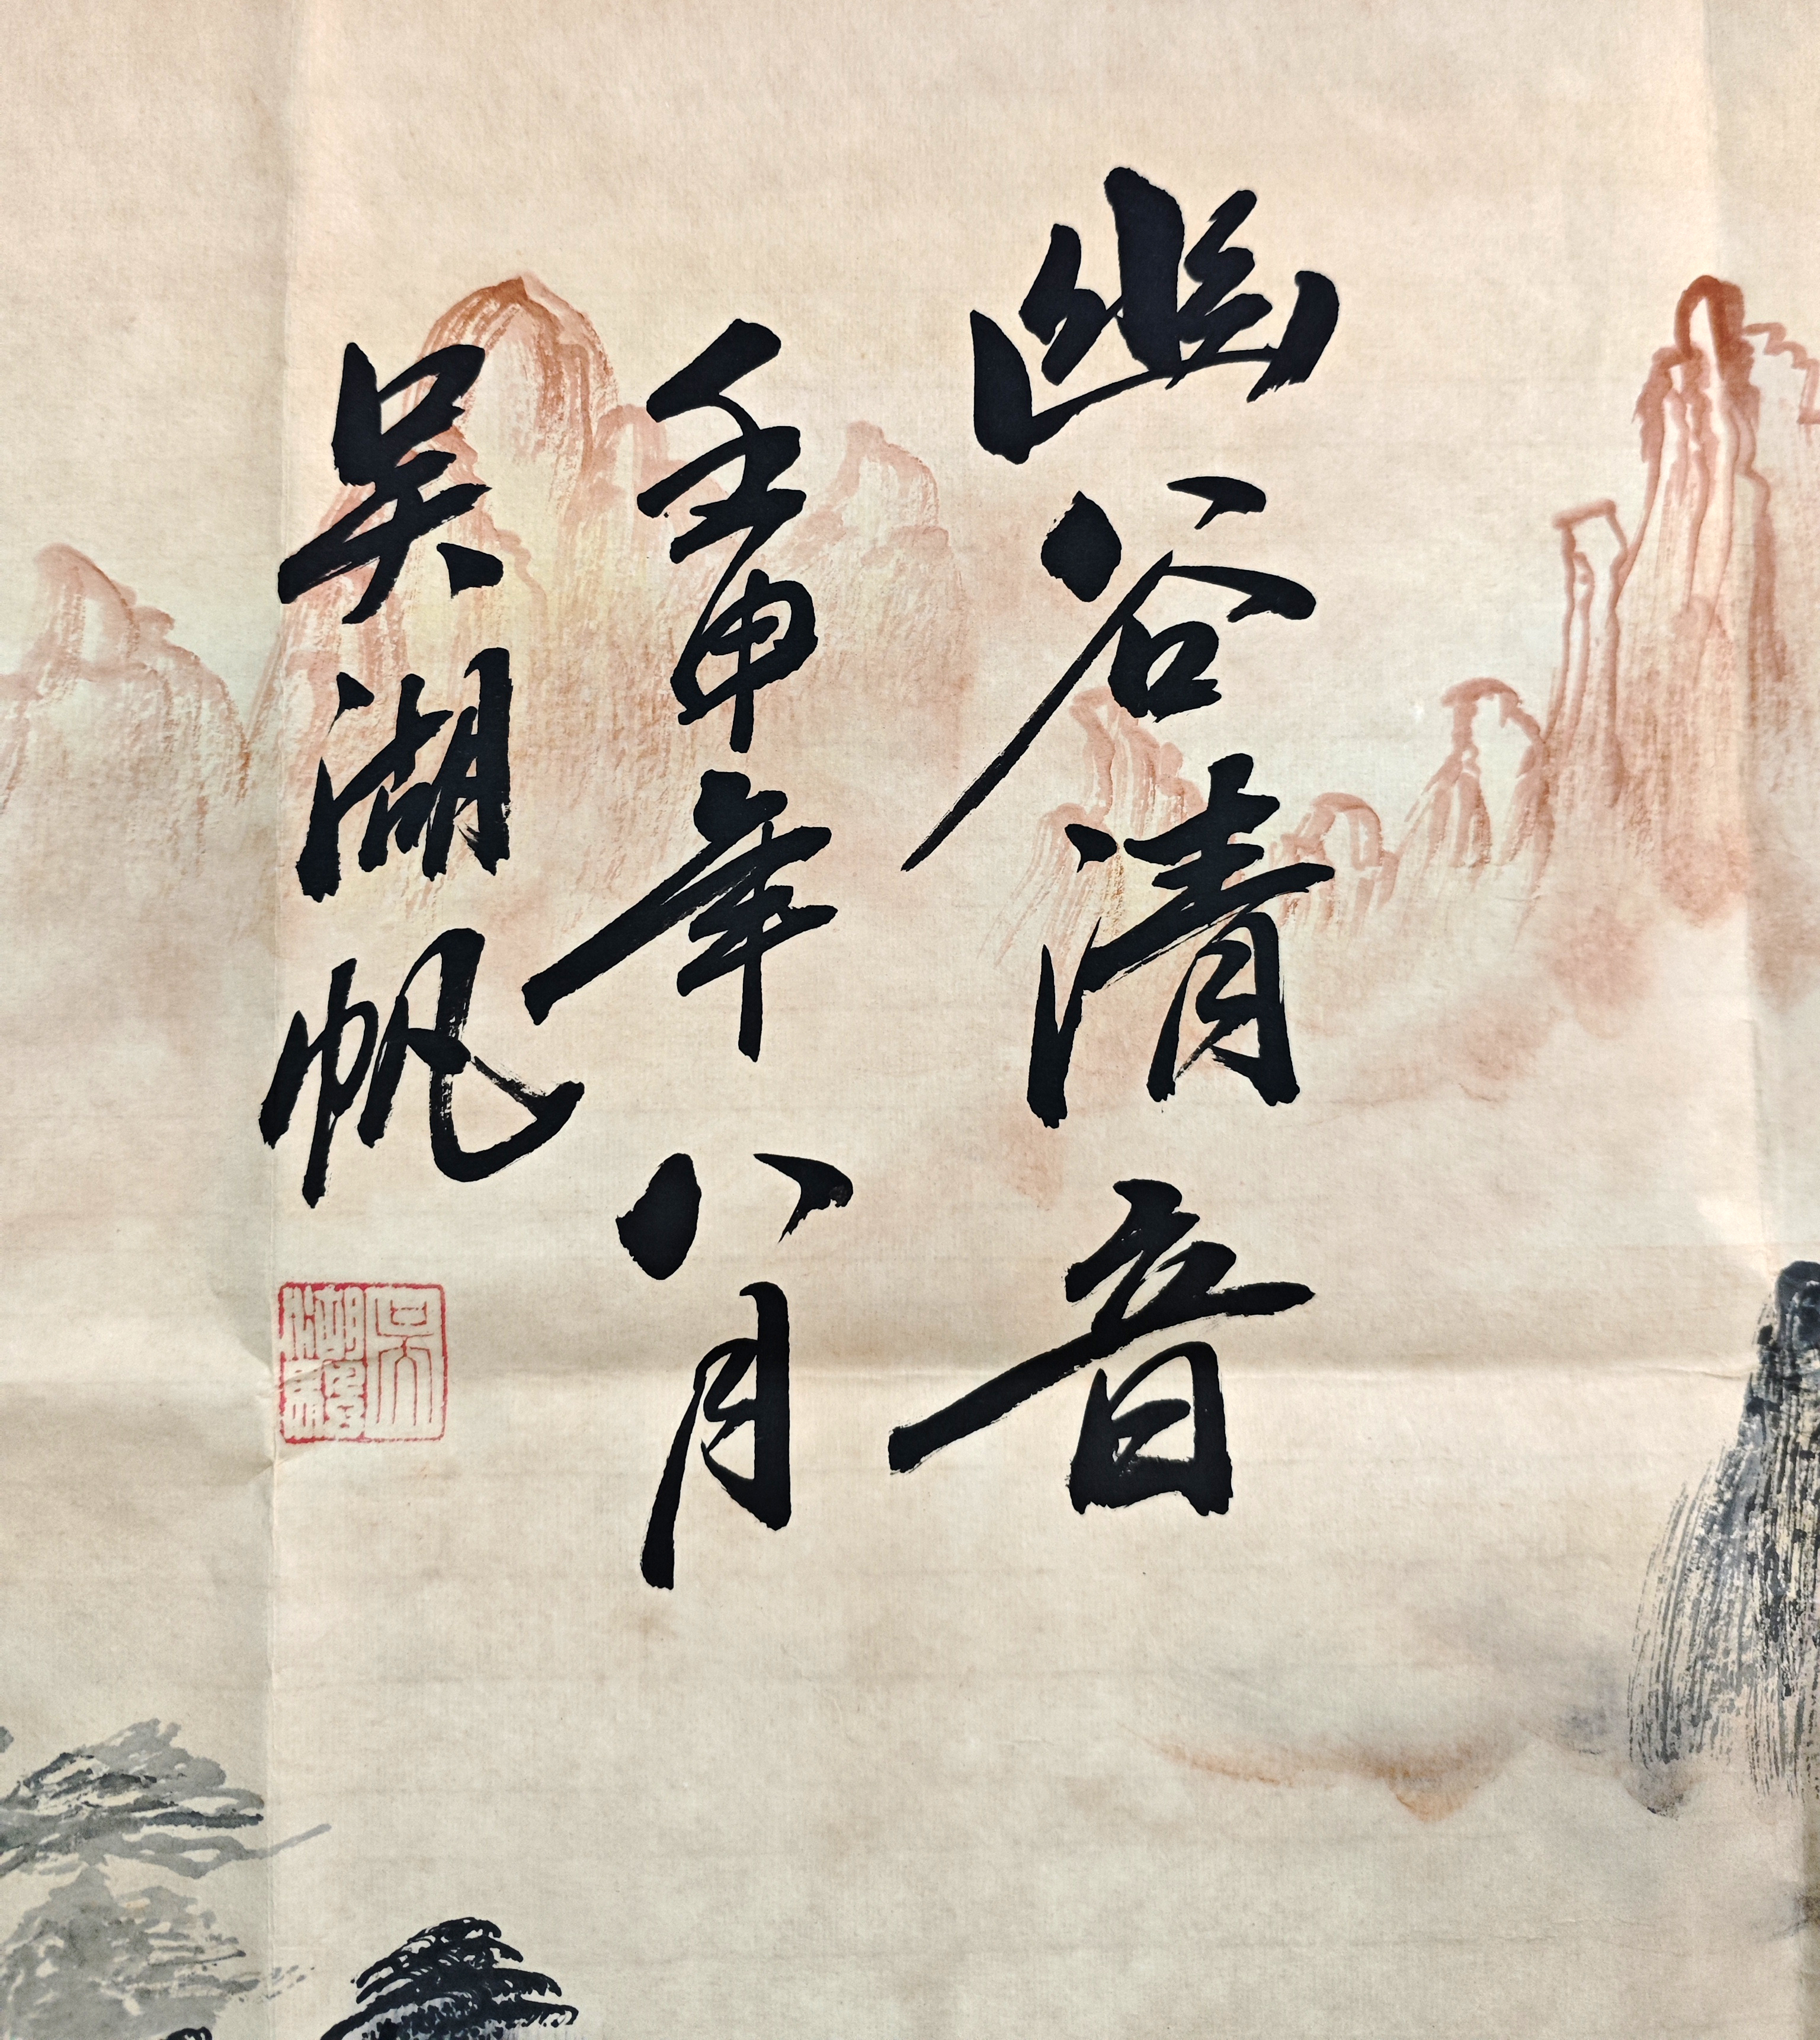 幽谷清音
壬申年八月
吴湖帆